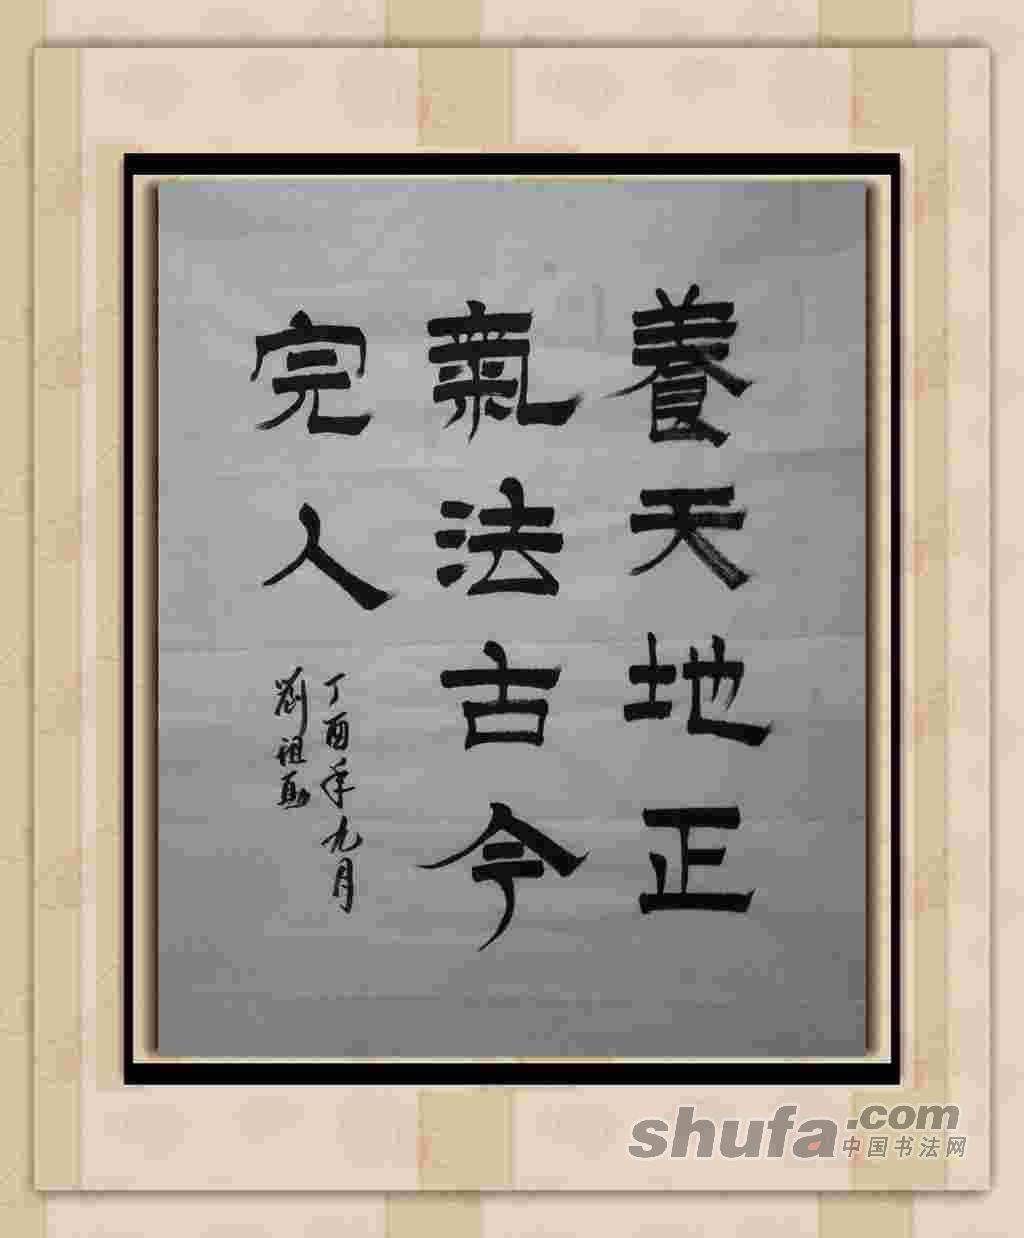 養天地正
氣法古今
完人
丁酉年九月
劉祖勛
shufa.com
中国书法网